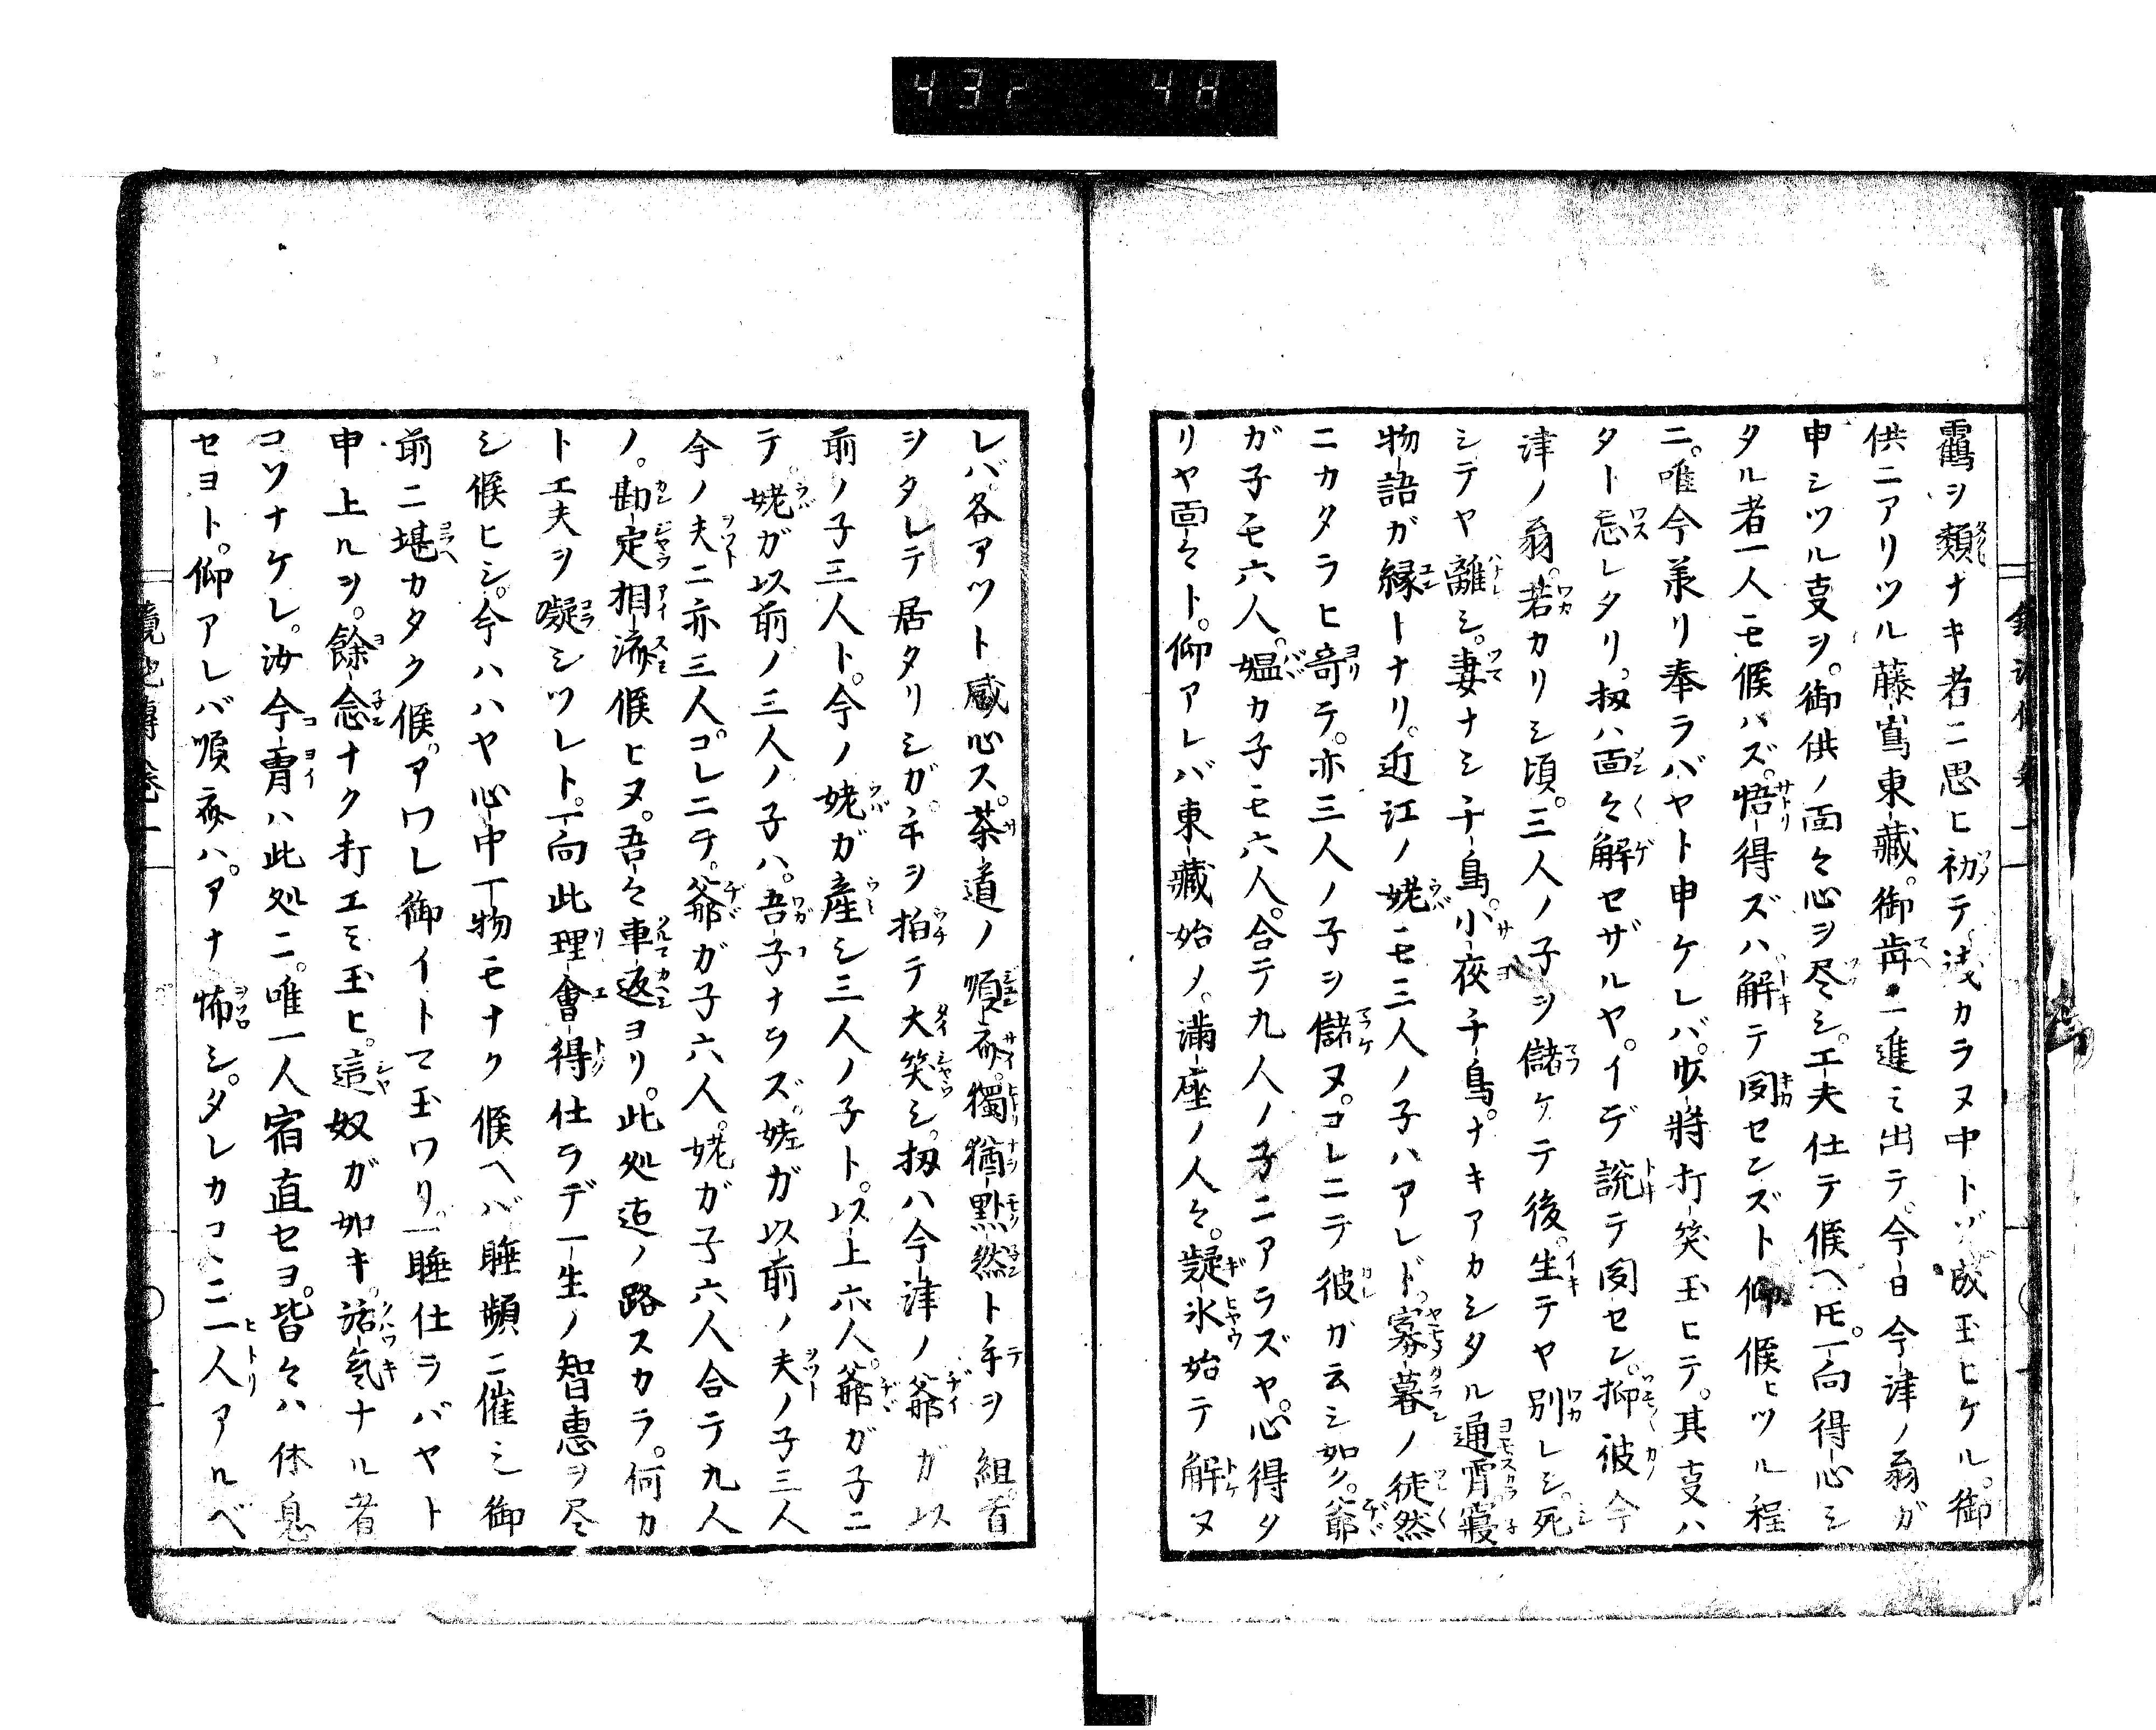 432 48
靍ヲ類ナキ者ニ思ヒ初テ浅カラヌ中トゾ成玉ヒケル。御
供ニアリツル藤嶌東藏。御前ニ進ミ出テ。今日今津ノ翁ガ
申シツル叓ヲ。御供ノ面々心ヲ尽シ。工夫仕テ候ヘ𪜈。一向得心シ
タル者一人モ候ハズ。悟得ズハ解テ聞センズト仰候ヒツル程
ニ。唯今承リ奉ラバヤト申ケレバ。少将打笑玉ヒテ。其叓ハ
タト忘レタリ。扨ハ面々解セザルヤ。イデ説テ聞セン。抑彼今
津ノ翁。若カリシ頃。三人ノ子ヲ儲ケテ後。生テヤ別レシ。死
シテヤ離シ。妻ナシ千鳥。小夜千鳥。ナキアカシタル通宵寢
物語ガ縁トナリ。近江ノ姥モ三人ノ子ハアレド。寡暮ノ徒然
ニカタラヒ寄テ。亦三人ノ子ヲ儲ヌ。コレニテ彼ガ云シ如ク。爺
ガ子モ六人。媼カ子モ六人。合テ九人ノ子ニアラズヤ。心得タ
リヤ面々ト。仰アレバ東藏始ノ。満座ノ人々。疑氷始テ解ヌ
レバ。各アツト感心ス。茶道ノ順斎。獨猶黙然ト手ヲ組。首
ヲタレテ居タリシガ。手ヲ拍テ大笑シ。扨ハ今津ノ爺ガ以
前ノ子三人ト。今ノ姥ガ産シ三人ノ子ト。以上六人。爺ガ子ニ
テ。姥ガ以前ノ三人ノ子ハ。吾子ナラズ。姥ガ以前ノ夫ノ子三人
今ノ夫ニ亦三人。コレニテ。爺ガ子六人。姥ガ子六人合テ九人
ノ。勘定相済候ヒヌ。吾々車返ヨリ。此処迠ノ路スカラ。何カ
ト工夫ヲ凝シツレト。一向此理會得仕ラデ一生ノ智惠ヲ尽
シ候ヒシ。今ハハヤ心中丁物モナク候ヘバ睡頻ニ催シ御
前ニ堪カタク候。アワレ御イトマ玉ワリ。一睡仕ラバヤト
申上ルヲ。餘念ナク打エミ玉ヒ。這奴ガ如キ。活氣ナル者
コソナケレ。汝今宵ハ此処ニ。唯一人宿直セヨ。皆々ハ休息
セヨト。仰アレバ順斎ハ。アナ怖シ。タレカコヽニ一人アルベ